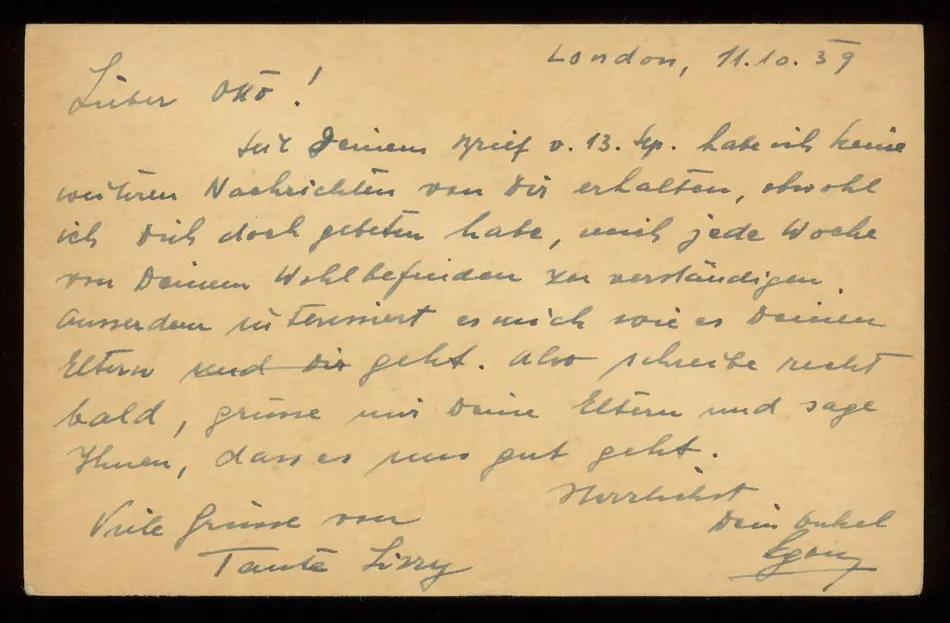 London, 11.10.39
Lieber Otto!
Seit Deinem Brief v. 13. Sep. habe ich keine
weiteren Nachrichten von Dir erhalten, obwohl
ich Dich doch gebeten habe, mich jede Woche
von Deinem Wohlbefinden zu verständigen.
Ausserdem interessiert es mich wie es Deinen
Eltern und Dir geht. Also schreibe recht
bald, grüsse mir Deine Eltern und sage
Ihnen, dass es uns gut geht.
Herzlichst
Dein Onkel
Egon
Viele Grüsse von
Tante Lizzy